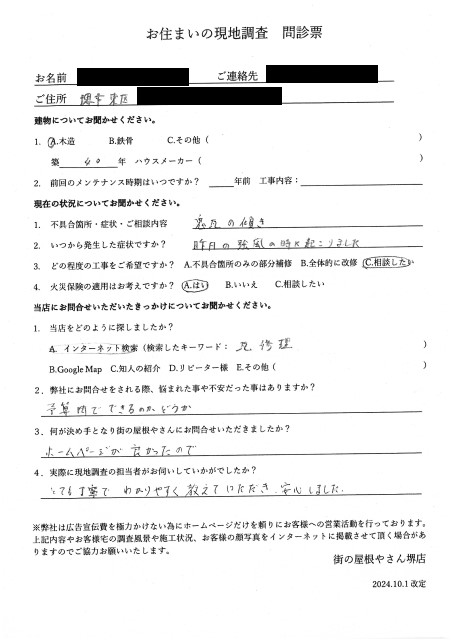 お住まいの現地調査 問診票
お名前 ご連絡先
ご住所 堺市東区
建物についてお聞かせください。
1. A.木造 B.鉄骨 C.その他（ ）
築 40 年 ハウスメーカー（ ）
2. 前回のメンテナンス時期はいつですか？ 年前 工事内容：
現在の状況についてお聞かせください。
1. 不具合箇所・症状・ご相談内容 の傾き
2. いつから発生した症状ですか？ 昨日の強風の時に起こりました
3. どの程度の工事をご希望ですか？ A.不具合箇所のみの部分補修 B.全体的に改修 C.相談したい
4. 火災保険の適用はお考えですか？ A.はい B.いいえ C.相談したい
当店にお問合せいただいたきっかけについてお聞かせください。
1. 当店をどのように探しましたか？
A. インターネット検索（検索したキーワード： 瓦 修理 ）
B.Google Map C.知人の紹介 D.リピーター様 E.その他（ ）
2．弊社にお問合せをされる際、悩まれた事や不安だった事はありますか？
予算内でできるのかどうか
3．何が決め手となり街の屋根やさんにお問合せいただきましたか？
ホームページが良かったので
4．実際に現地調査の担当者がお伺いしていかがでしたか？
とても丁寧で わかりやすく教えていただき、安心しました。
※弊社は広告宣伝費を極力かけない為にホームページだけを頼りにお客様への営業活動を行っております。
上記内容やお客様宅の調査風景や施工状況、お客様の顔写真をインターネットに掲載させて頂く場合があ
りますのでご協力お願いいたします。
街の屋根やさん堺店
2024.10.1 改定